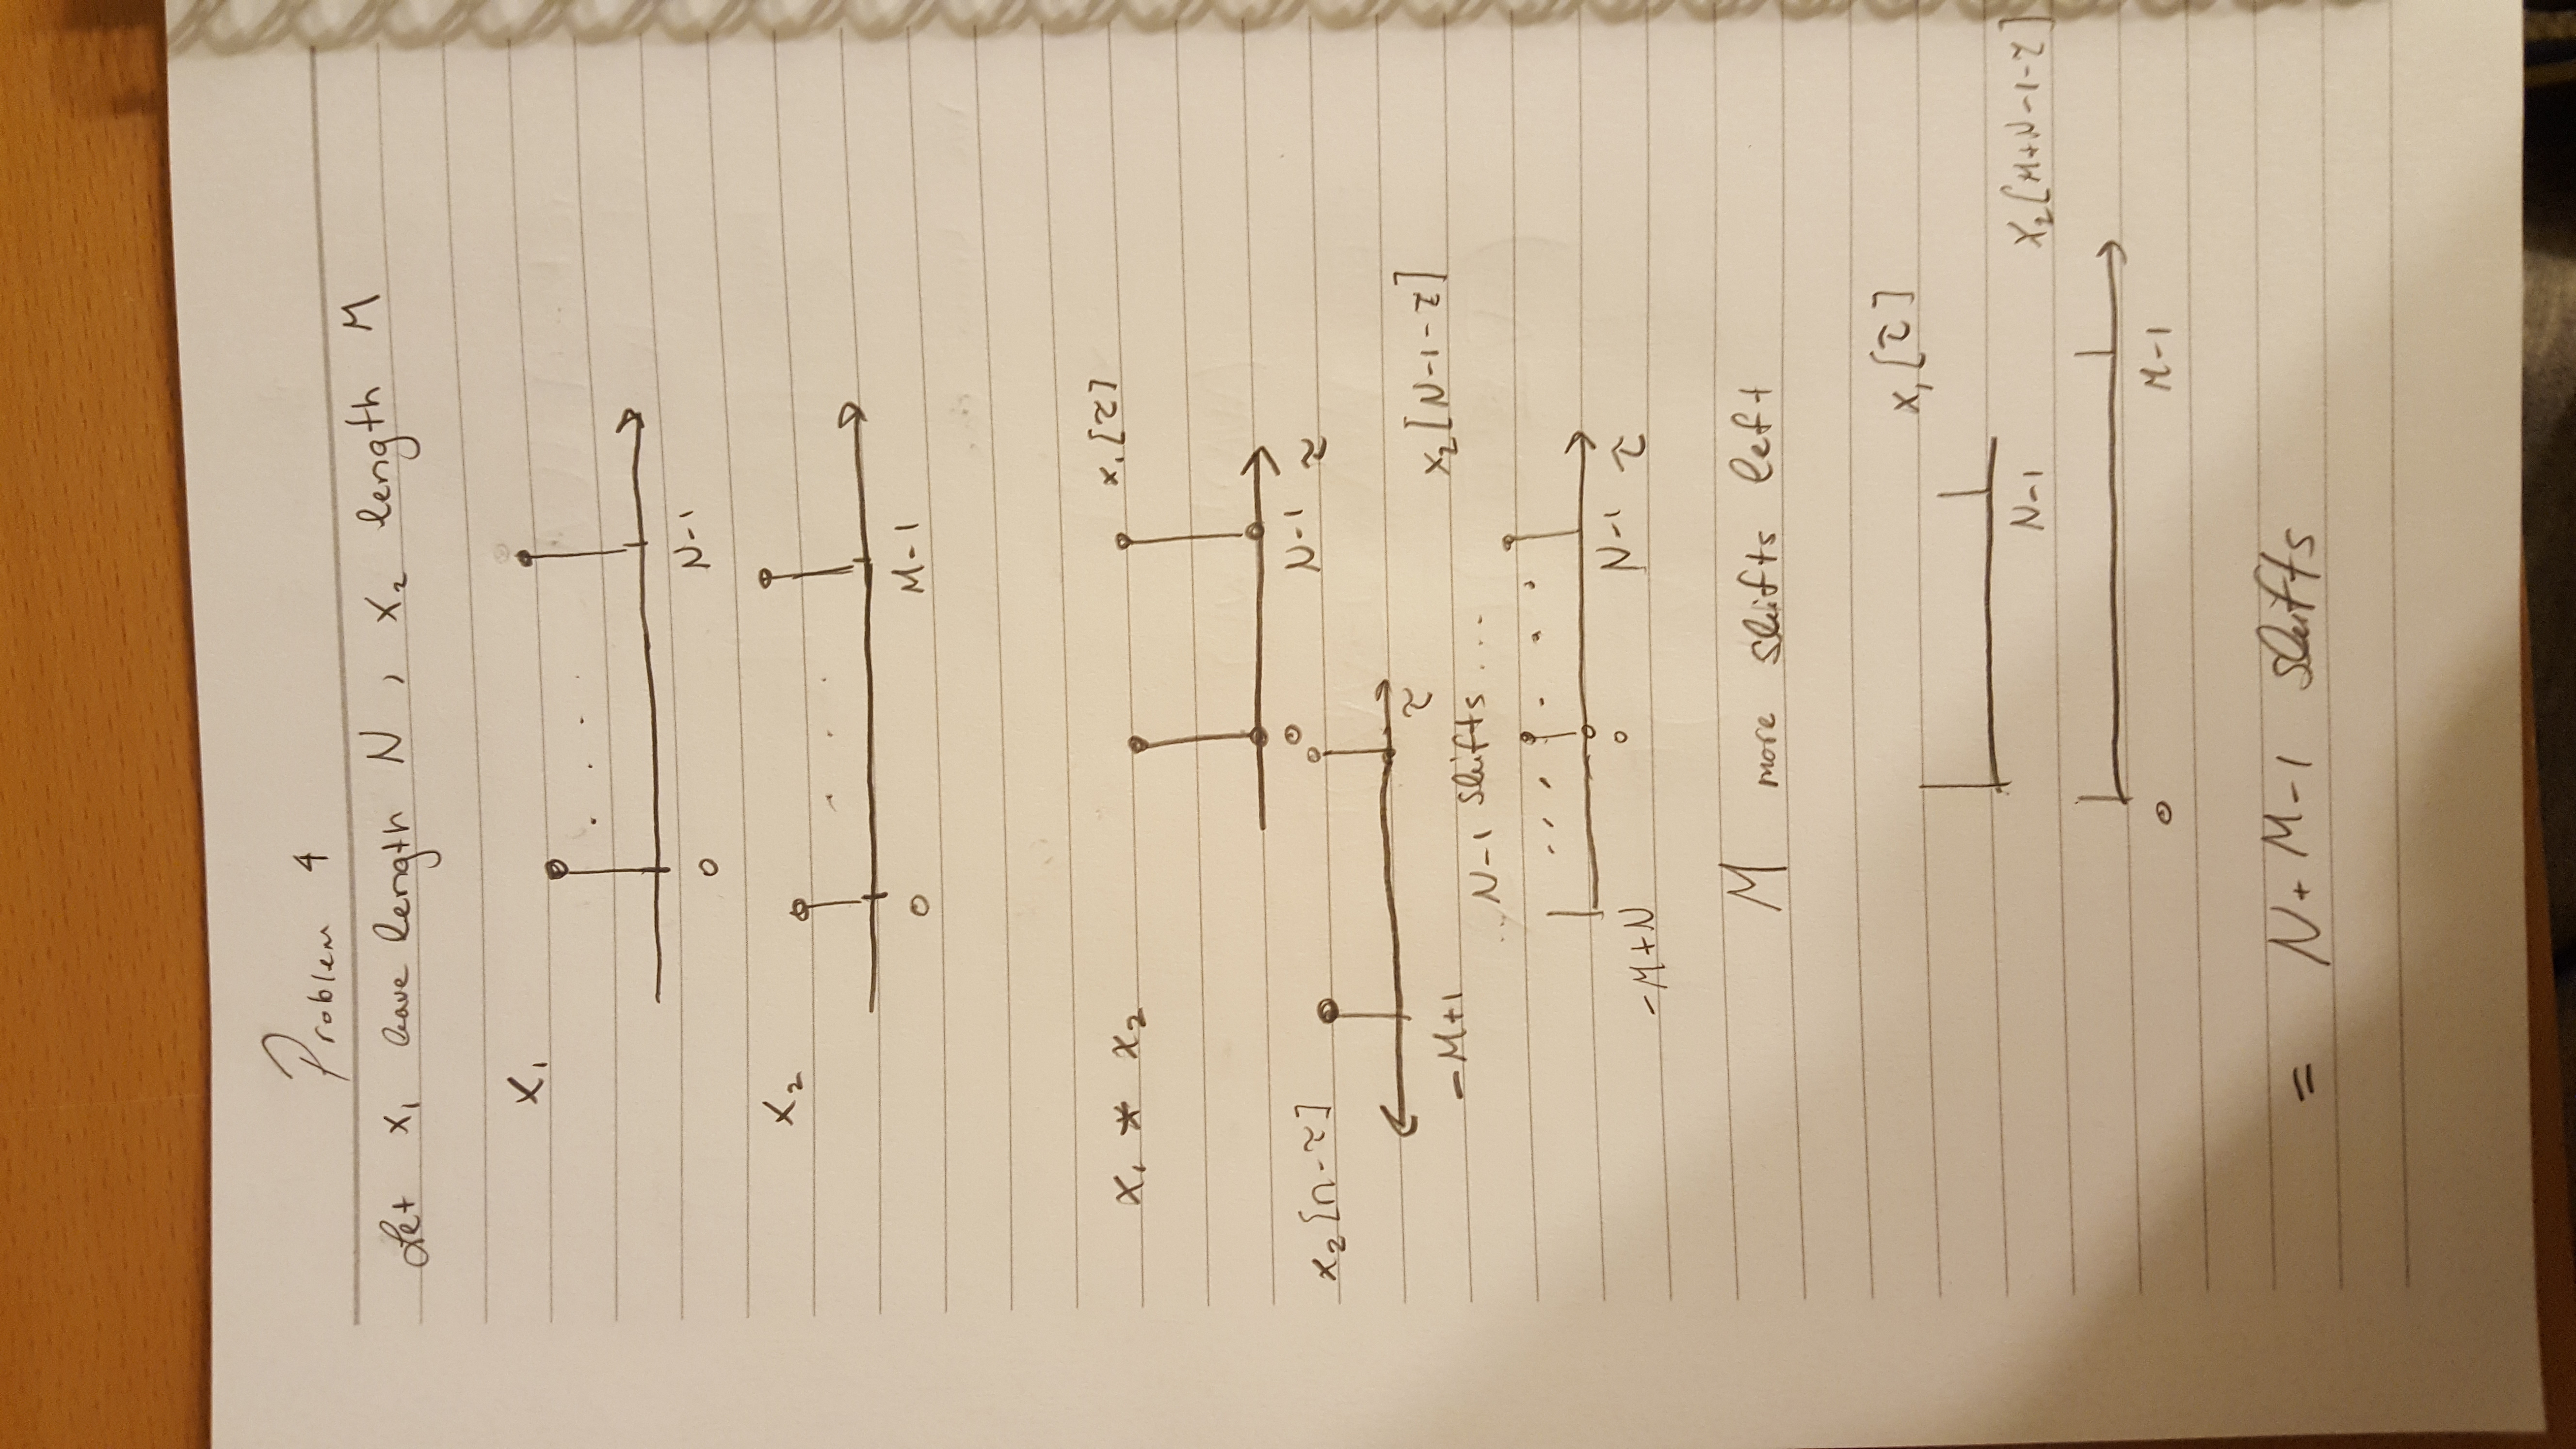 Problem 4
Let x₁ have length N , x₂ length M
x₁
0
N-1
x₂
0
M-1
x₁ * x₂
x₁[τ]
0
N-1
τ
x₂[n-τ]
-M+1
τ
..N-1 shifts...
x₂[N-1-τ]
-M+N
0
N-1
τ
M more shifts left
x₁[τ]
N-1
x₂[M+N-1-τ]
0
M-1
= N+M-1 shifts